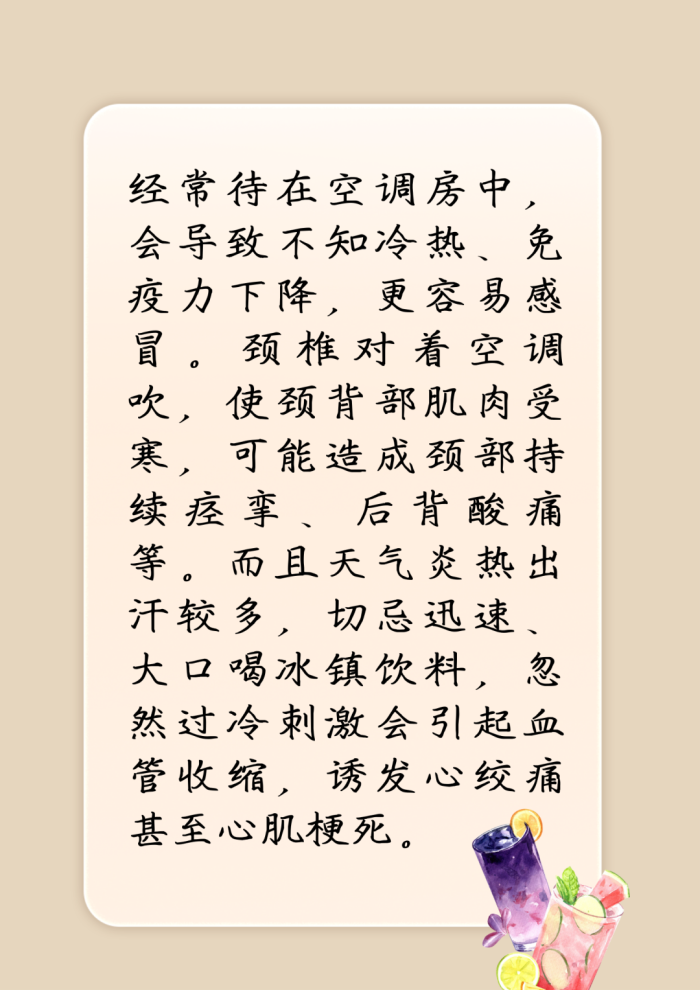 经常待在空调房中，
会导致不知冷热、免
疫力下降，更容易感
冒。颈椎对着空调
吹，使颈背部肌肉受
寒，可能造成颈部持
续痉挛、后背酸痛
等。而且天气炎热出
汗较多，切忌迅速、
大口喝冰镇饮料，忽
然过冷刺激会引起血
管收缩，诱发心绞痛
甚至心肌梗死。